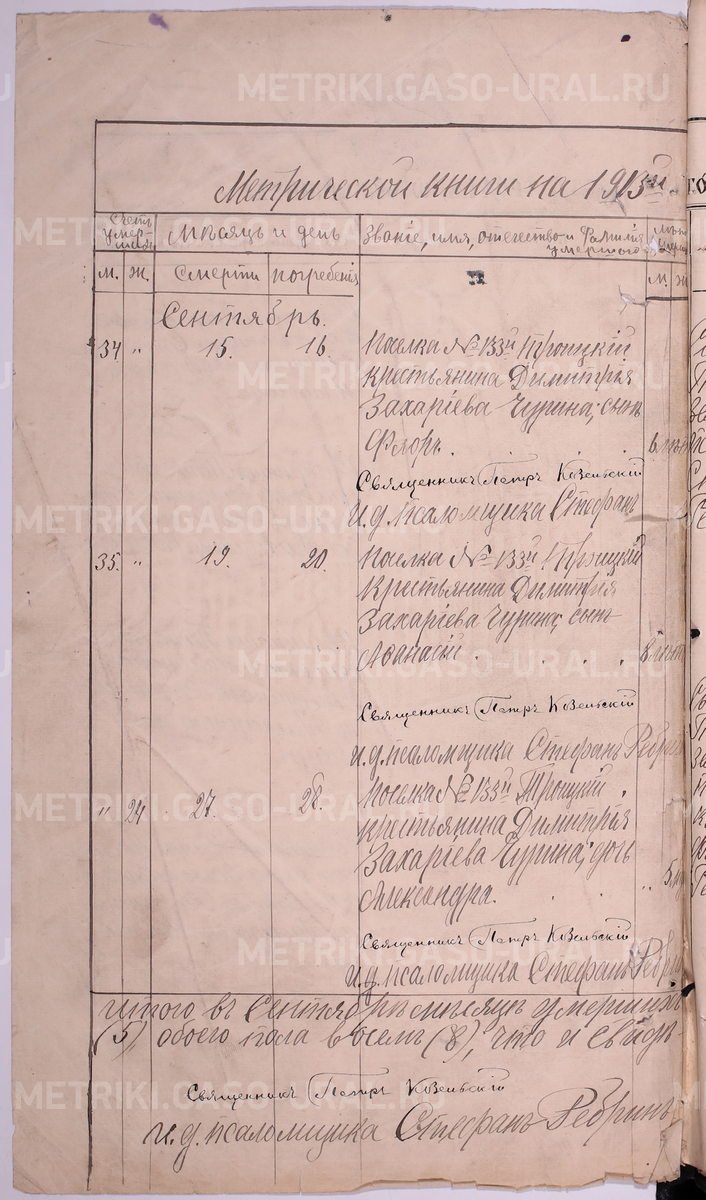 Метрической книги на 1913й
Счетъ умер- шихъ Мѣсяцъ и день Званіе, имя, отечество и фамилія умершаго
м. ж. Смерти погребенія м. ж
Сентябрь.
34 " 15. 16. Поселка № 133й Троицкій
крестьянина Димитрія
Захаріева Чурина, сынъ
Флоръ.
Священникъ Петръ Козельскій
и. д. псаломщика Стефанъ
35. " 19. 20. Поселка № 133й Троицкій
крестьянина Димитрія
Захаріева Чурина, сынъ
Аѳанасій
Священникъ Петръ Козельскій
и. д. псаломщика Стефанъ Ребрин
" 24 27. 28. Поселка № 133й Троицкій
крестьянина Димитрія
Захаріева Чурина, дочь
Александра. " 5
Священникъ Петръ Козельскій
и. д. псаломщика Стефанъ Ребрин
Итого въ Сентябрѣ мѣсяцѣ умершихъ
(5), обоего пола восемь (8), что и свидѣ-
Священникъ Петръ Козельскій
и. д. псаломщика Стефанъ Ребринъ
METRIKI.GASO-URAL.RU